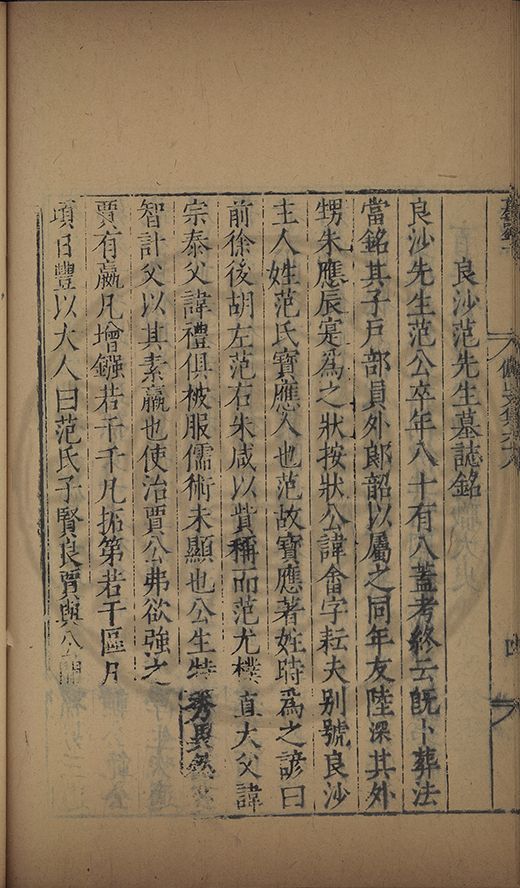 良沙范先生墓誌銘
良沙先生范公卒年八十有八蓋考終云既卜葬法
當銘其子戶部員外郎韶以屬之同年友陸深其外
甥朱應辰寔為之狀按狀公諱畬字耘夫别號良沙
主人姓范氏寶應人也范故寶應著姓時為之諺曰
前徐後胡左范右朱咸以貲稱而范尤樸直大父諱
宗泰父諱禮俱被服儒術未顯也公生特秀異然
智計父以其素羸也使治賈公弗欲強之
賈有贏凡增鏹若干千凡拓第若干區月
項日豐以大人曰范氏子賢良賈與公